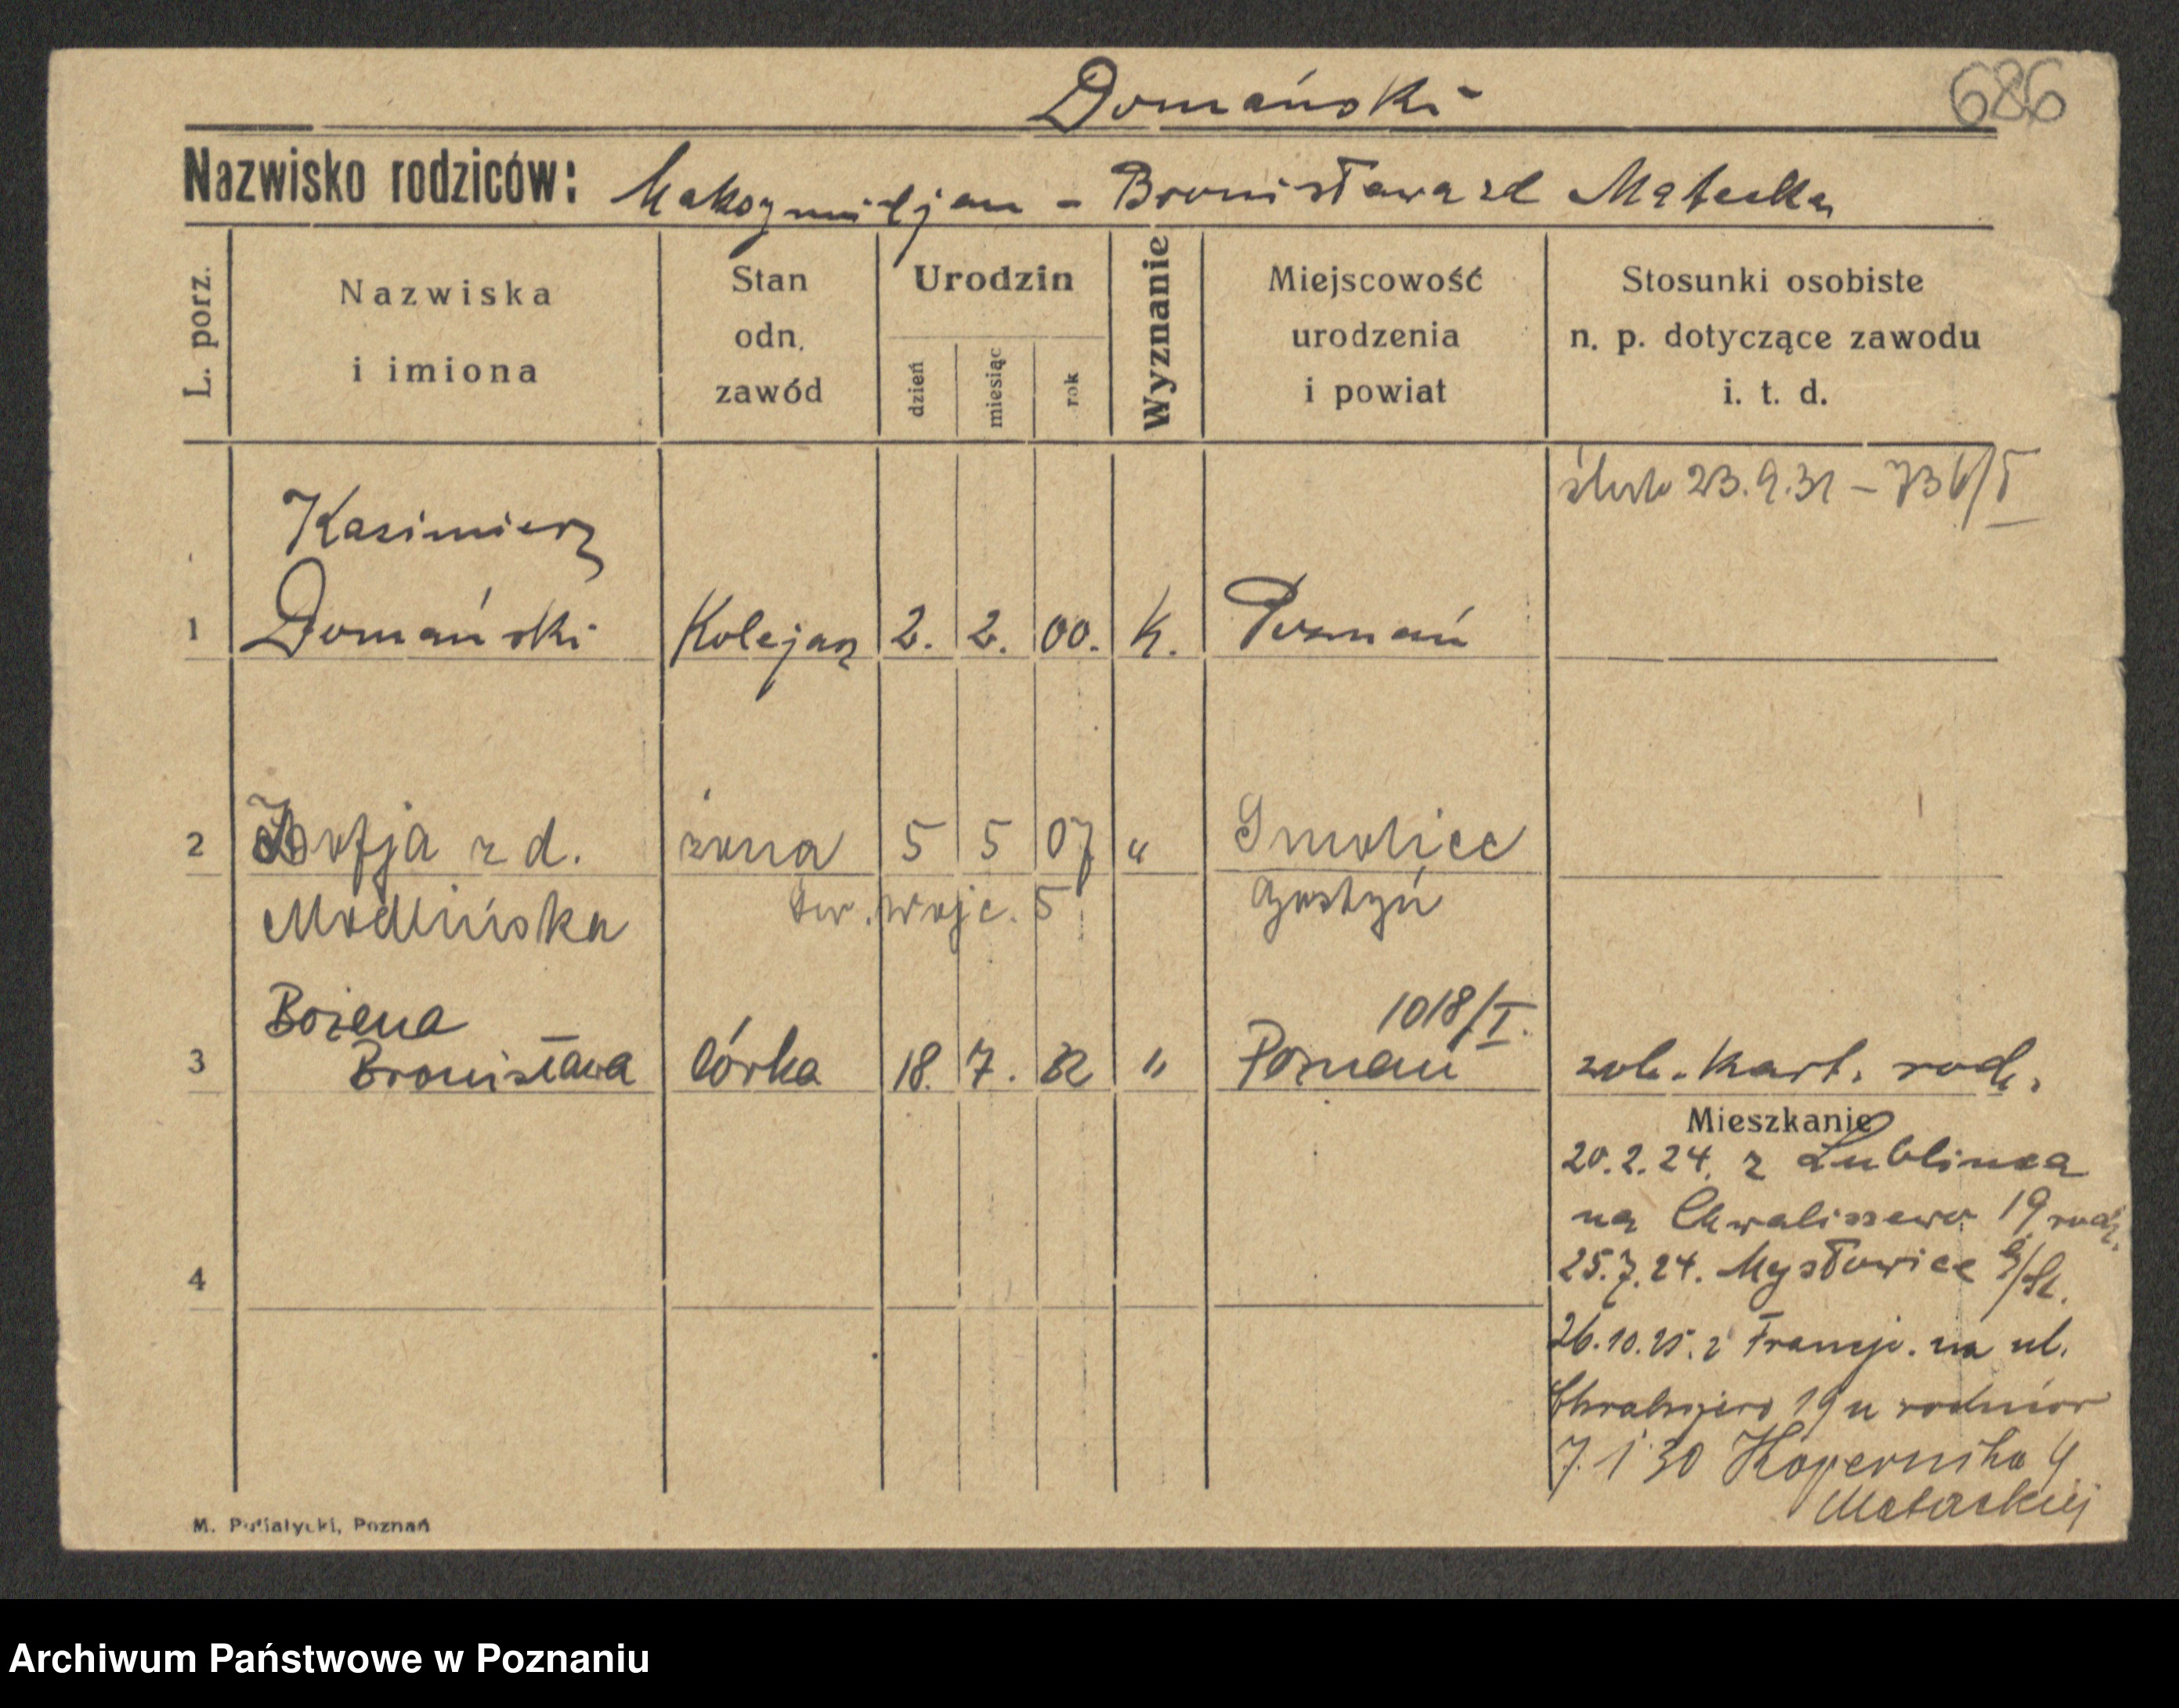 Domański
686
Nazwisko rodziców: Maksymiljan - Bronisława zd Matecka
L. porz.
Nazwiska
i imiona
Stan
odn.
zawód
Urodzin
dzień
miesiąc
rok
Wyznanie
Miejscowość
urodzenia
i powiat
Stosunki osobiste
n. p. dotyczące zawodu
i. t. d.
23.9.31 -
Kazimierz
1 Domański Kolejarz 2. 2. 00. K. Poznań
2 Zofja z d. żona 5 5 07 " Smolice
Modlińska św. Wojc. 5 Gostyń
Bożena 1018/I.
3 Bronisława Córka 18. 7. 32 " Poznań zob. Kart. rodz.
Mieszkanie
20.2.24. z Lublińca
na Chwaliszewo 19 rodz.
25.7.24. Mysłowice G/Śl.
4
26.10.25. z Francji. na ul.
Chwaliszewo 19 u rodziców
7.1 30 Kopernika 4
Mateckiej
M. Putiatycki, Poznań
Archiwum Państwowe w Poznaniu